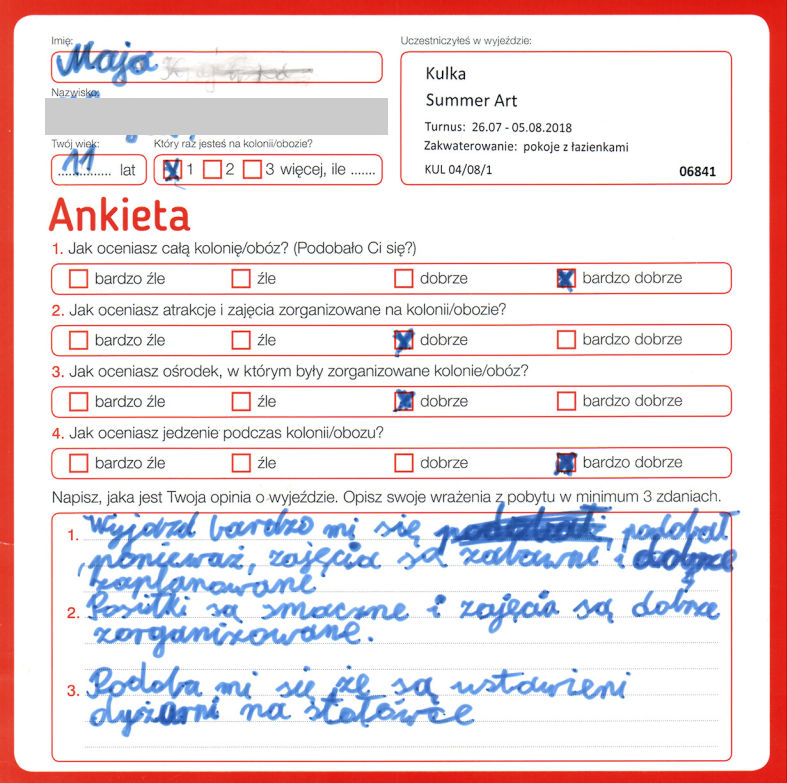 Imię:
Maja
Uczestniczyłeś w wyjeździe:
Kulka
Summer Art
Turnus: 26.07 - 05.08.2018
Zakwaterowanie: pokoje z łazienkami
KUL 04/08/1 06841
Nazwisko:
Twój wiek: Który raz jesteś na kolonii/obozie?
11 lat X 1 2 3 więcej, ile .......
Ankieta
1. Jak oceniasz całą kolonię/obóz? (Podobało Ci się?)
bardzo źle źle dobrze X bardzo dobrze
2. Jak oceniasz atrakcje i zajęcia zorganizowane na kolonii/obozie?
bardzo źle źle X dobrze bardzo dobrze
3. Jak oceniasz ośrodek, w którym były zorganizowane kolonie/obóz?
bardzo źle źle X dobrze bardzo dobrze
4. Jak oceniasz jedzenie podczas kolonii/obozu?
bardzo źle źle dobrze X bardzo dobrze
Napisz, jaka jest Twoja opinia o wyjeździe. Opisz swoje wrażenia z pobytu w minimum 3 zdaniach.
1. Wyjazd bardzo mi się podobał
, ponieważ, zajęcia są zabawne i dobrze
zaplanowane
2. Posiłki są smaczne i zajęcia są dobrze
zorganizowane.
3. Podoba mi się że są ustawieni
dyżurni na stołówce